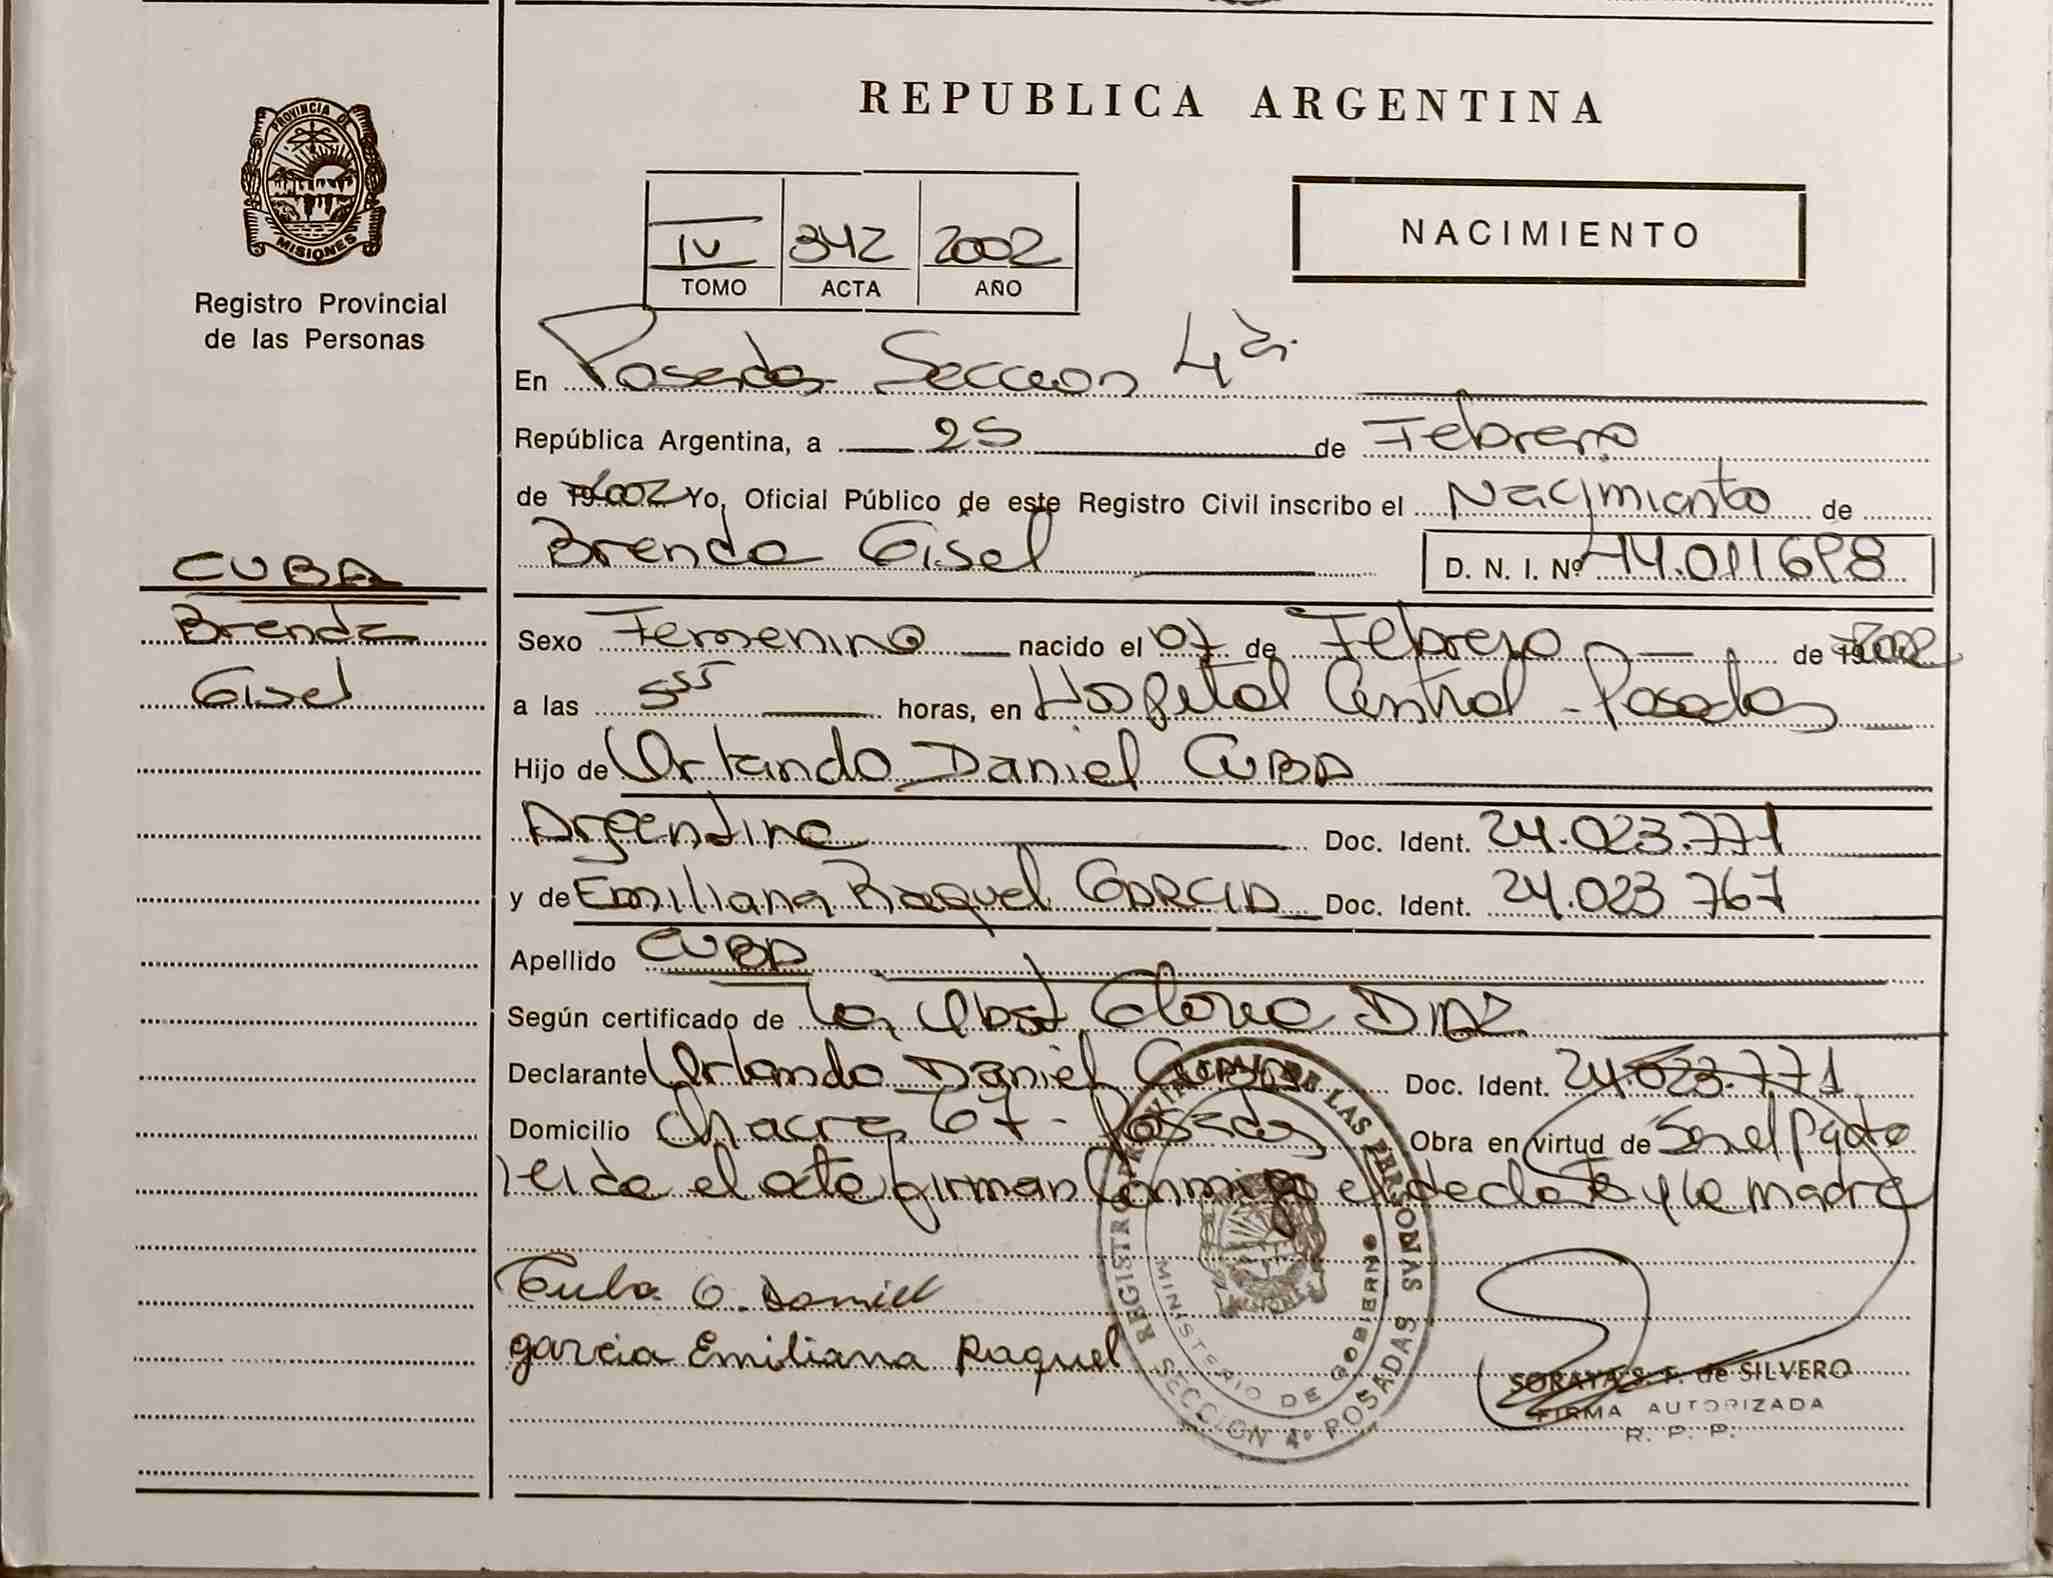 REPUBLICA ARGENTINA
PROVINCIA DE
MISIONES
Registro Provincial
de las Personas
IV 342 2002
TOMO ACTA AÑO
NACIMIENTO
En Posadas Seccion 4ta
República Argentina, a 25 de Febrero
de 2002 Yo, Oficial Público de este Registro Civil inscribo el Nacimiento de
Brenda Gisel D. N. I. Nº 44.011698
CUBA
Brenda
Gisel
Sexo Femenino nacido el 07 de Febrero de 2002
a las 5 55 horas, en Hospital Central - Posadas
Hijo de Orlando Daniel CUBA
Argentina Doc. Ident. 24.023.771
y de Emiliana Raquel GARCIA Doc. Ident. 24.023 767
Apellido CUBA
Según certificado de la Obst Gloria DIAZ
Declarante Orlando Daniel CUBA Doc. Ident. 24.023.771
Domicilio Chacra 67 - Posadas Obra en virtud de Ser el Padre
leida el acta firman conmigo el declate y la madre
Cuba O. Daniel
garcia Emiliana Raquel
REGISTRO PROVINCIAL DE LAS PERSONAS
MINISTERIO DE GOBIERNO
SECCION 4º POSADAS
SORAYA S. F. de SILVERO
FIRMA AUTORIZADA
R. P. P.